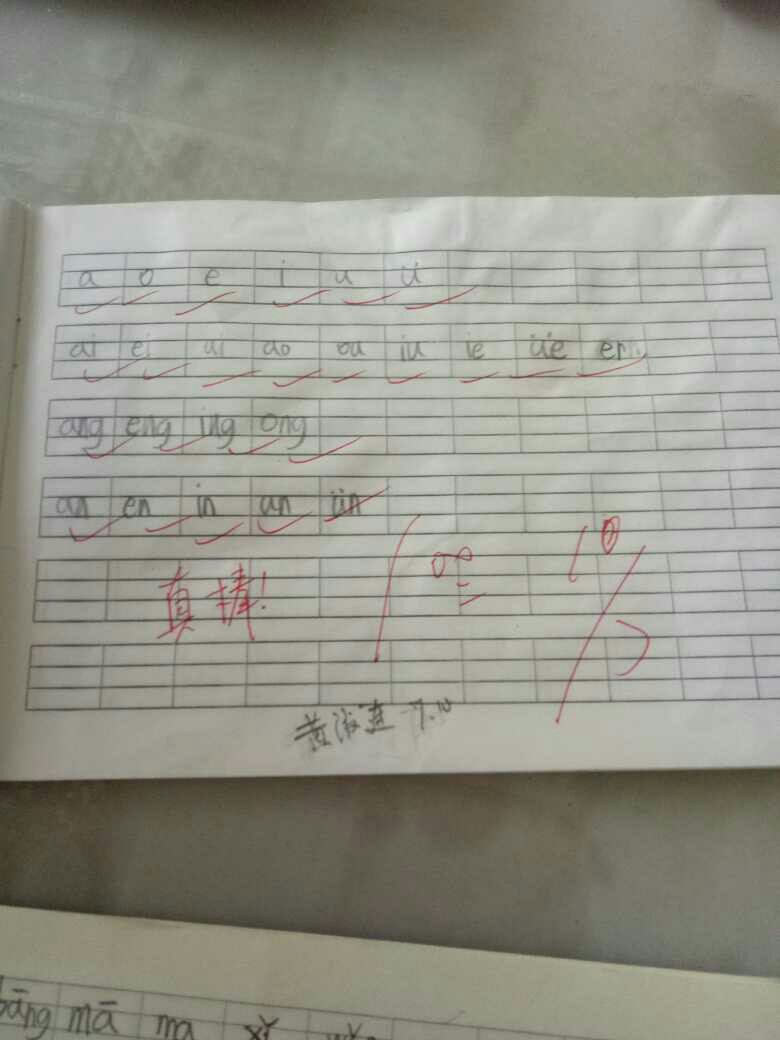 a o e i u ü
ai ei ui ao ou iu ie üe er
ang eng ing ong
an en in un ün
真棒!
100
10
7.10
bāng mā ma